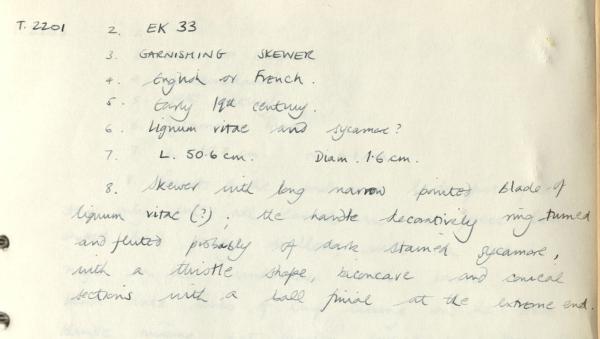 T. 2201 2. EK 33
3. GARNISHING SKEWER
4. English or French.
5. Early 19th century.
6. Lignum vitae and sycamore?
7. L. 50.6 cm. Diam. 1.6 cm.
8. Skewer with long narrow pointed blade of
lignum vitae (?); the handle decoratively ring-turned
and fluted probably of dark stained sycamore,
with a thistle shape, biconcave and conical
sections with a ball finial at the extreme end.